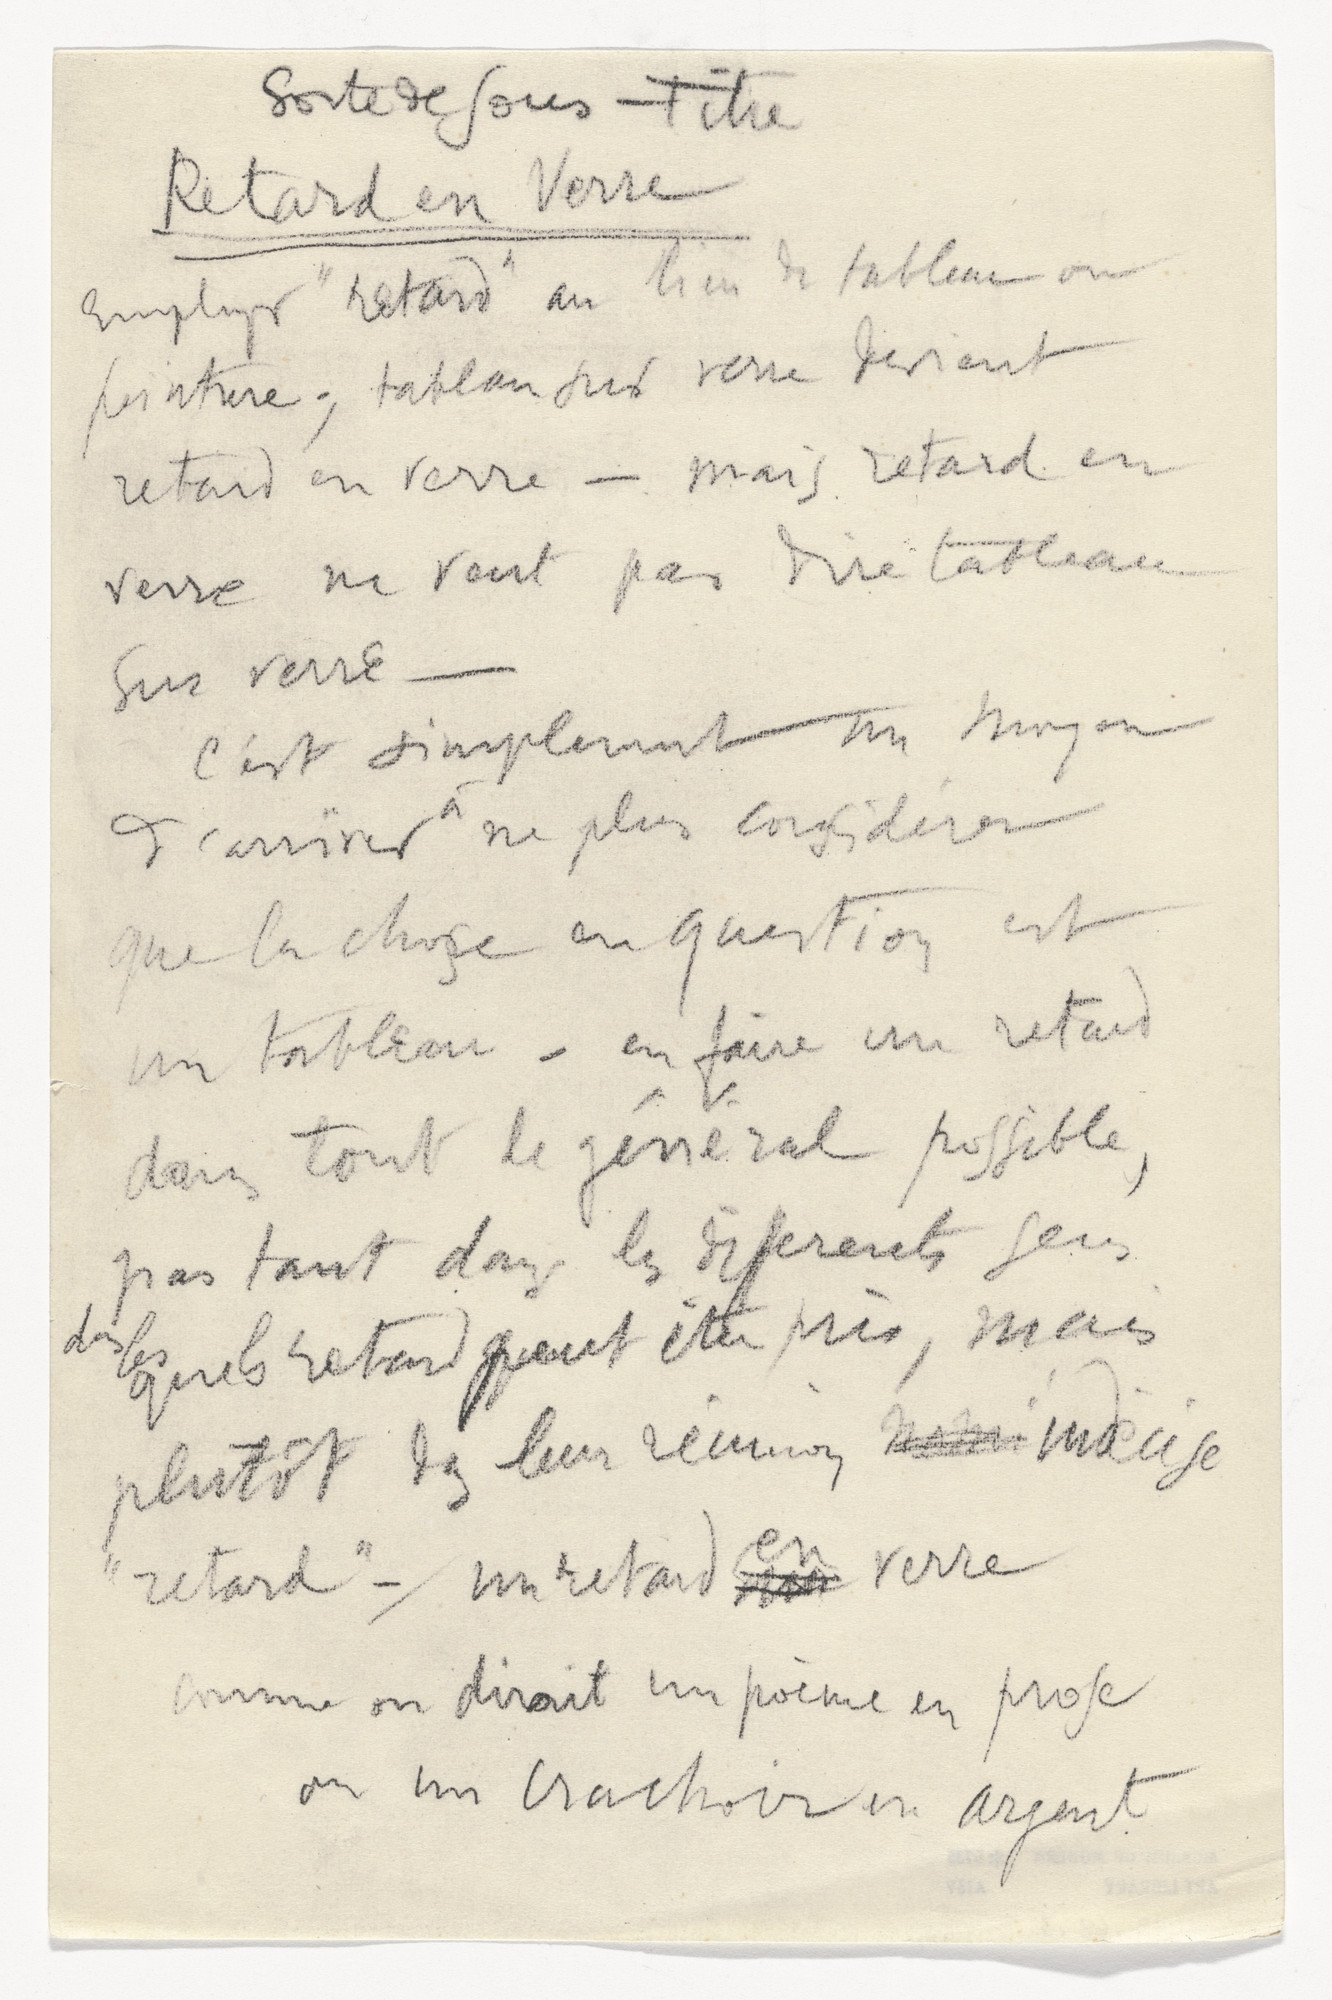 Sorte de Sous-Titre
Retard en Verre
Employer "retard" au lieu de tableau ou
peinture; tableau sur verre devient
retard en verre — mais retard en
verre ne veut pas dire tableau
sur verre —
C'est simplement un moyen
d'arriver à ne plus considérer
que la chose en question est
un tableau - en faire un retard
dans tout le général possible,
pas tant dans les différents sens
dans lesquels retard peut être pris, mais
plutôt dans leur réunion indécise
"retard" — / un retard en verre
comme on dirait un poème en prose
ou un crachoir en argent